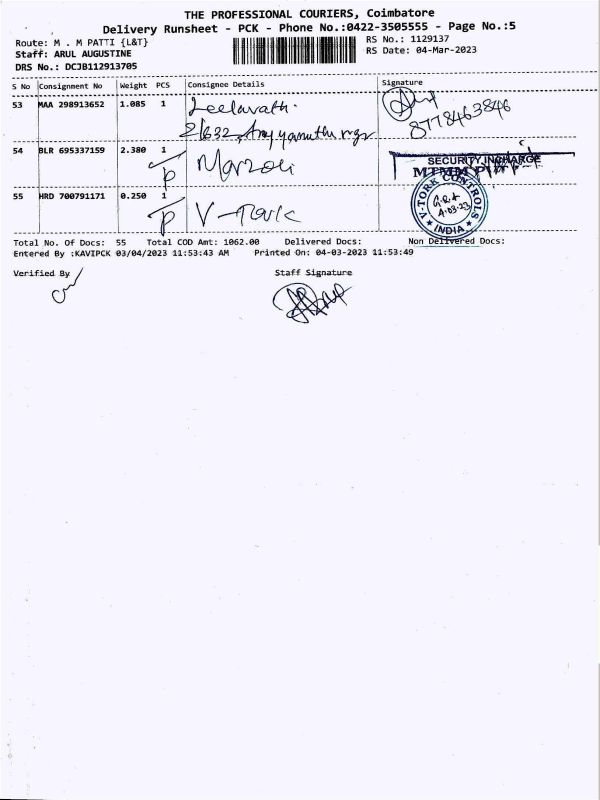 THE PROFESSIONAL COURIERS, Coimbatore
Delivery Runsheet - PCK - Phone No.:0422-3505555 - Page No.:5
Route: M . M PATTI {L&T}
RS No.: 1129137
Staff: ARUL AUGUSTINE
RS Date: 04-Mar-2023
DRS No.: DCJB112913705
S No Consignment No Weight PCS Consignee Details Signature
53 MAA 298913652 1.085 1 Leelavath.
8778463846
2/632,
54 BLR 695337159 2.380 1 Marzoli
P
SECURITY INCHARGE
MTMM
55 HRD 700791171 0.250 1 V-Tork
P
V-TORK CONTROLS
4.03.23
★ INDIA ★
Total No. Of Docs: 55 Total COD Amt: 1062.00 Delivered Docs: Non Delivered Docs:
Entered By :KAVIPCK 03/04/2023 11:53:43 AM Printed On: 04-03-2023 11:53:49
Verified By Staff Signature